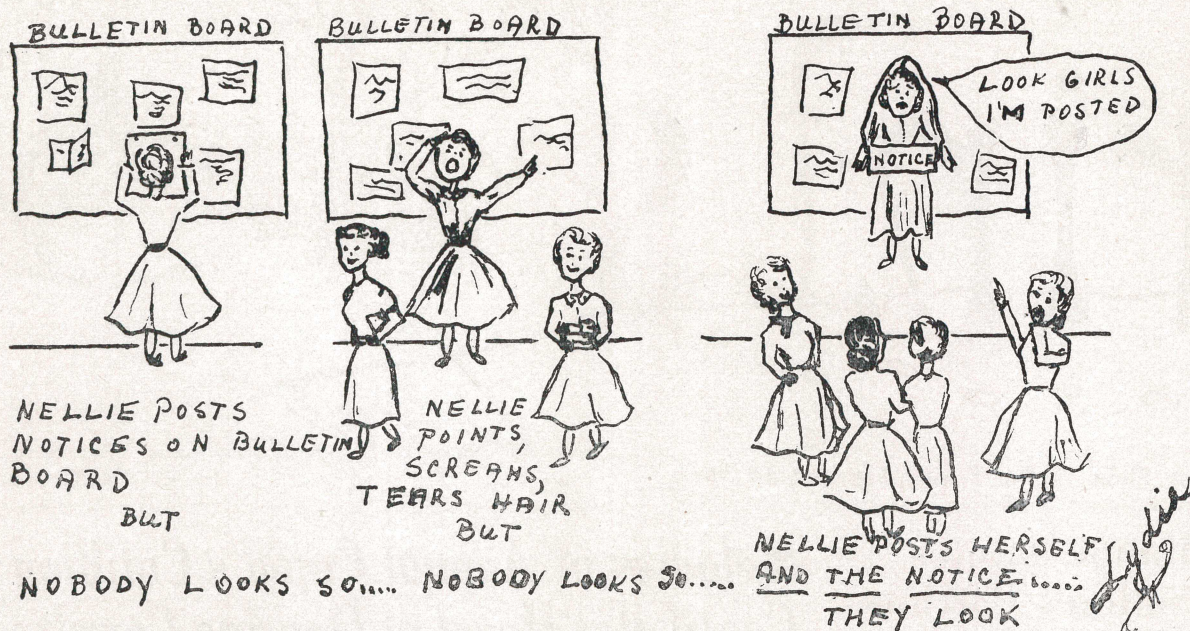 BULLETIN BOARD
NELLIE POSTS
NOTICES ON BULLETIN
BOARD
BUT
NOBODY LOOKS SO....
BULLETIN BOARD
NELLIE
POINTS,
SCREAMS,
TEARS HAIR
BUT
NOBODY LOOKS SO.....
BULLETIN BOARD
LOOK GIRLS
I'M POSTED
NOTICE
NELLIE POSTS HERSELF
AND THE NOTICE.....
THEY LOOK